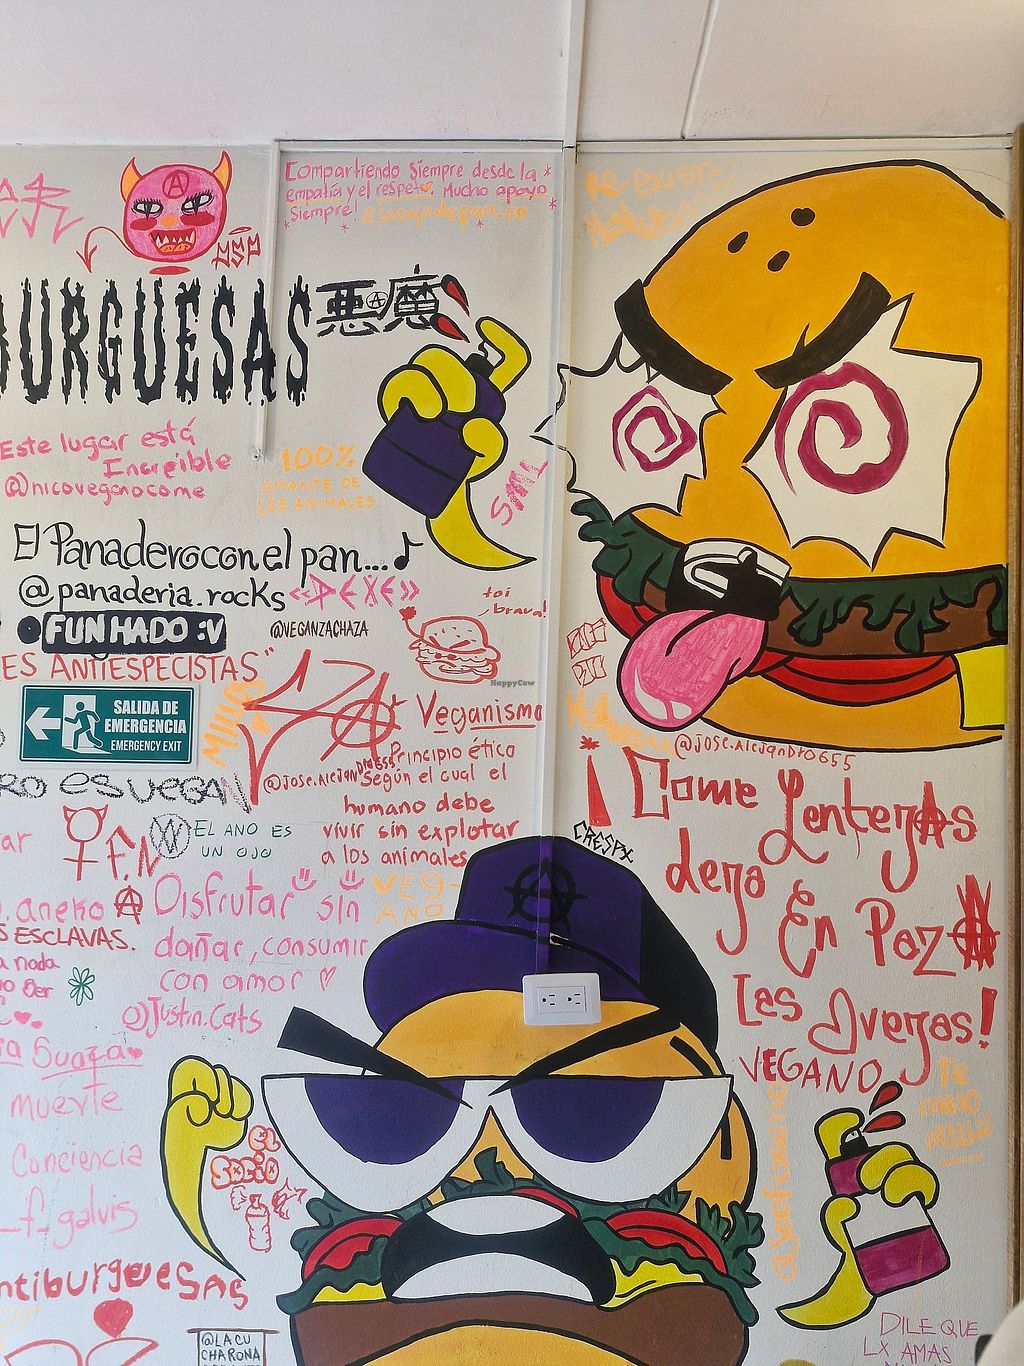 Compartiendo Siempre desde la
empatía y el respeto. Mucho apoyo
Siempre!
A
MSP
URGUESAS 悪魔
Este lugar está
Increíble
@nicoveganocome
100%
AMANTE DE
LOS ANIMALES
SML
El Panadero con el pan...
@panaderia.rocks
«DEXE»
FUNHADO :V
@VEGANZACHAZA
toi
brava!
ES ANTIESPECISTAS"
SALIDA DE
EMERGENCIA
EMERGENCY EXIT
HappyCow
Veganismo
Principio ético
Según el cual el
humano debe
vivir sin explotar
a los animales
@JOSE.AlejANDRO655
RO ES VEGAN
EL ANO ES
UN OJO
ar
F.N
VEG-
ANO
aneko
S ESCLAVAS.
a nada
Ser
Disfrutar sin
dañar, consumir
con amor
@Justin.Cats
a Suaza
muerte
Conciencia
_f_galvis
EL
SOCIO
ntiburguesas
@LACU
CHARONA
@JOSE.AlejANDRO655
¡Come LentejAs
deja
En Paz A
Las Ovejas!
CRESPX
VEGANO
DILE QUE
LX AMAS